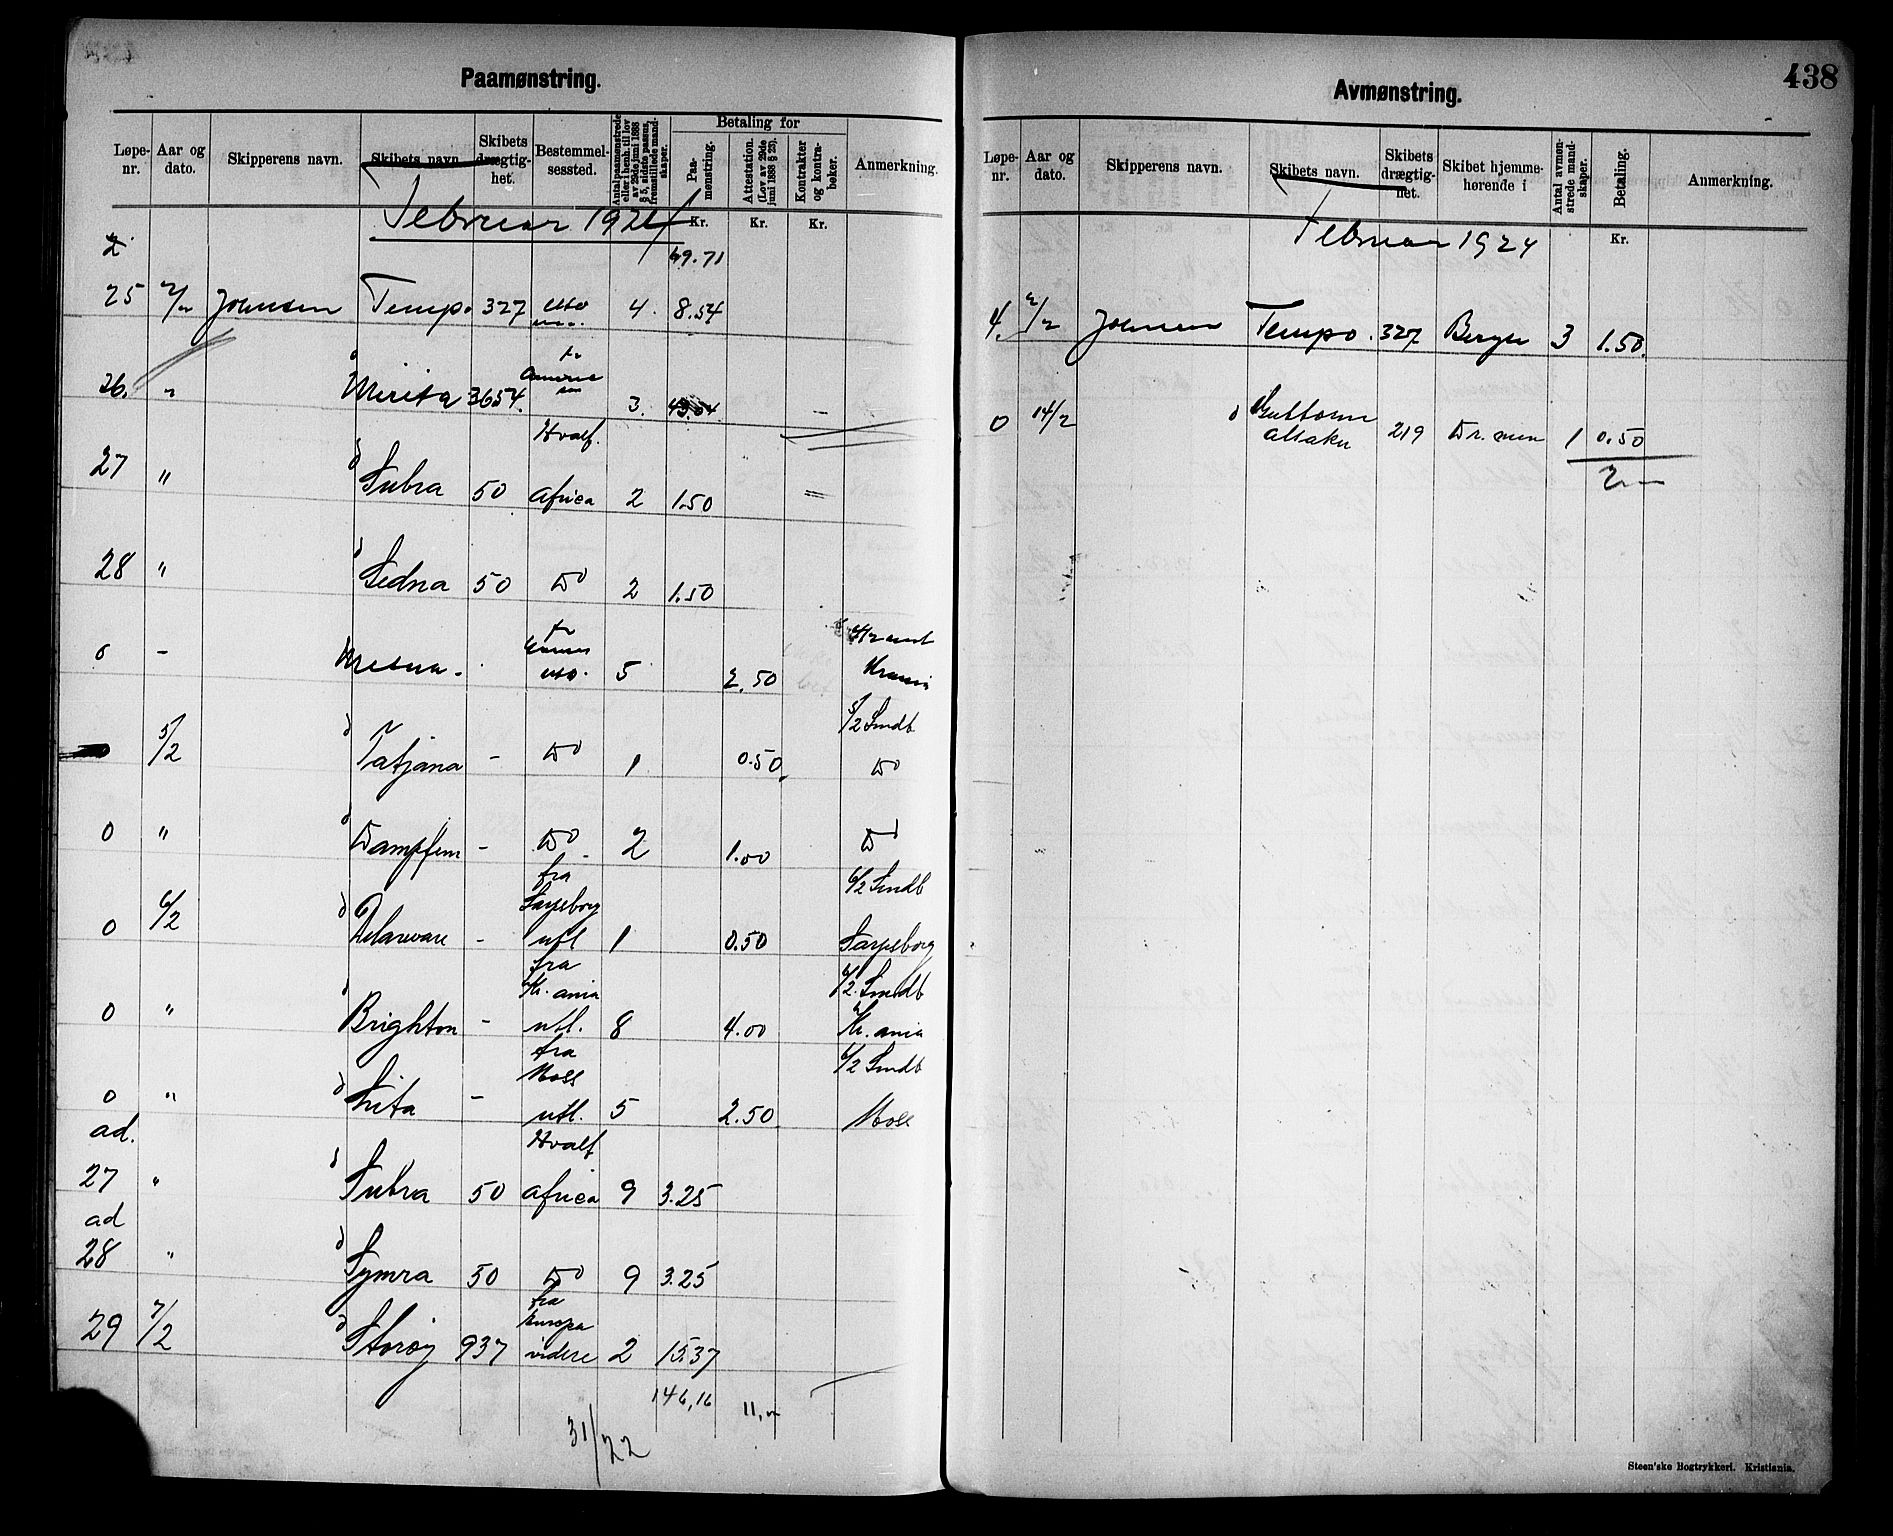 438
Paamønstring.
Løpe-nr. Aar og dato. Skipperens navn. Skibets navn. Skibets drægtig-het. Bestemmel-sessted. Antal paamønstrede eller i henh. til lov av 29de juni 1888 § 5, sidste passus, fremstillede mand-skaper. Betaling for Paa-mønstring. Attestation. (Lov av 29de juni 1888 § 29). Kontrakter og kontra-bøker. Anmerkning.
Kr. Kr. Kr.
Februar 1924
69.71
25 Johnsen Tempo 327 4. 8.54
26. " Mirita 3654. 3.
27 " Subra 50 Hvalf. Africa 2 1.50
28 " Sedna 50 Do 2 1.50
0 - 5 2.50
5/2 Tatjana - Do 1 0.50 5/2 Sndb Do
0 " - Do 2 1.00 Do
0 6/2 Delaware - fra Sarpsborg utl 1 0.50 6/2 Sndb Sarpsborg
0 " Brighton - fra Kr.ania utl. 8 4.00 6/2 Sndb Kr.ania
0 " Lita - fra Moss utl. 5 2.50 6/2 Sndb Moss
ad. 27 " Subra 50 Hvalf Africa 9 3.25
ad 28 " Symra 50 Do 9 3.25
29 7/2 Storøy 937 fra Europa videre 2 15.37
146,16 11,-
31/22
Avmønstring.
Løpe-nr. Aar og dato. Skipperens navn. Skibets navn. Skibets drægtig-het. Skibet hjemme-hørende i Antal avmøn-strede mand-skaper. Betaling. Anmerkning.
Kr.
Februar 1924
4. 2/2 Johnsen Tempo. 327 Bergen 3 1.50.
0 14/2 Guttorm 219 Dr.men 1 0.50
2-
Steen'ske Bogtrykkeri. Kristiania.